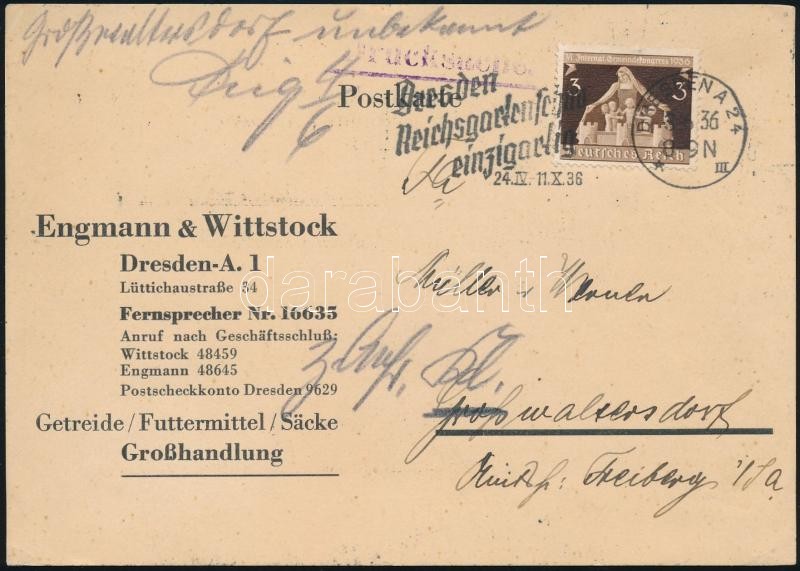 Großwaltersdorf unbekannt
Drucksache
Postkarte
Dresden
Reichsgartenschau
einzigartig
24.IV. 11.X.36
VI. Internat. Gemeindekongress 1936
3 3
Deutsches Reich
DRESDEN A 24
36
8-9N
III
Fa
Engmann & Wittstock
Dresden-A. 1
Lüttichaustraße 34
Fernsprecher Nr. 16635
Anruf nach Geschäftsschluß:
Wittstock 48459
Engmann 48645
Postscheckkonto Dresden 9629
Getreide / Futtermittel / Säcke
Großhandlung
Müller & Werner
Großwaltersdorf
Freiberg i/Sa
darabanth